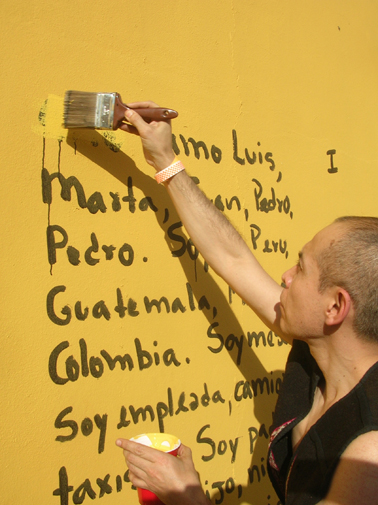 Luis,
I
Marta, Pedro,
Pedro. Soy Peru,
Guatemala,
Colombia. Soy me
Soy empleada, camio
Soy pa
taxis ijo, ni